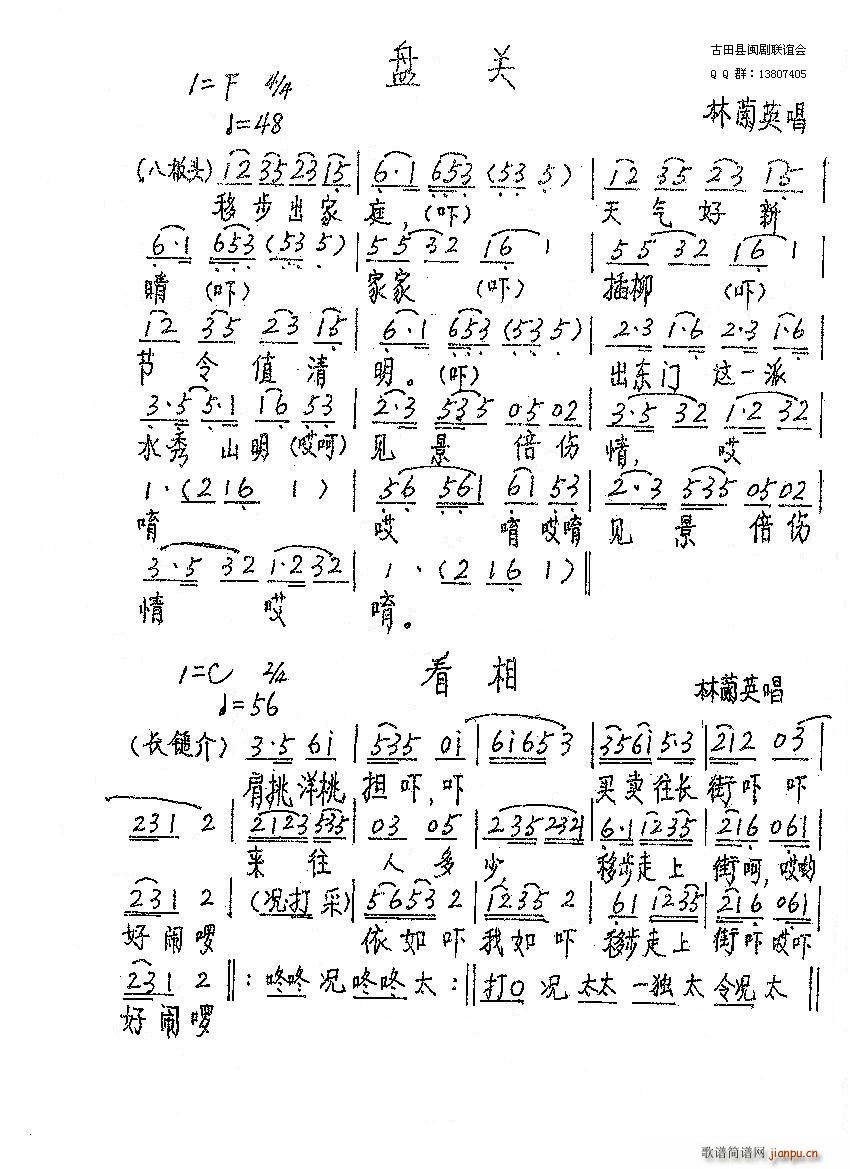 古田县闽剧联谊会
QQ群:13807405
盘关
1=F 4/4
♩=48
林蘭英唱
(八板头) 12 35 23 15 | 6·1 653 (53 5) | 12 35 23 15 |
移步出家庭,(吓) 天气好新
6·1 653 (53 5) | 55 32 16 1 | 55 32 16 1 |
晴(吓) 家家(吓) 插柳(吓)
12 35 23 15 | 6·1 653 (53 5) | 2·3 1·6 2·3 1·6 |
节令值清明。(吓) 出东门这一派
3·5 5·1 16 53 | 2·3 535 05 02 | 3·5 32 1·2 32 |
水秀山明(哎呵) 见景倍伤情,哎
1·(2 16 1) | 56 561 61 53 | 2·3 535 05 02 |
唷 哎唷哎唷 见景倍伤
3·5 32 1·2 32 | 1·(2 16 1) ‖
情哎唷。
1=C 2/4
♩=56
看相
林蘭英唱
(长鎚介) 3·5 6i | 535 0i | 6i65 3 | 356i 5·3 | 2i2 03 |
肩挑洋桃担吓,吓 买卖往长街吓吓
231 2 | 2123 535 | 03 05 | 235 232 | 6·1 1235 | 216 061 |
来往人多少, 移步走上街呵,哎哟
231 2 | (况打采) | 5653 2 | 1235 2 | 61 1235 | 216 061 |
好闹啰 依如吓我如吓 移步走上街吓哎吓
231 2 ‖: 咚咚况咚咚太 :‖ 打0况太太一独太令况太 ‖
好闹啰
歌谱简谱网 jianpu.cn